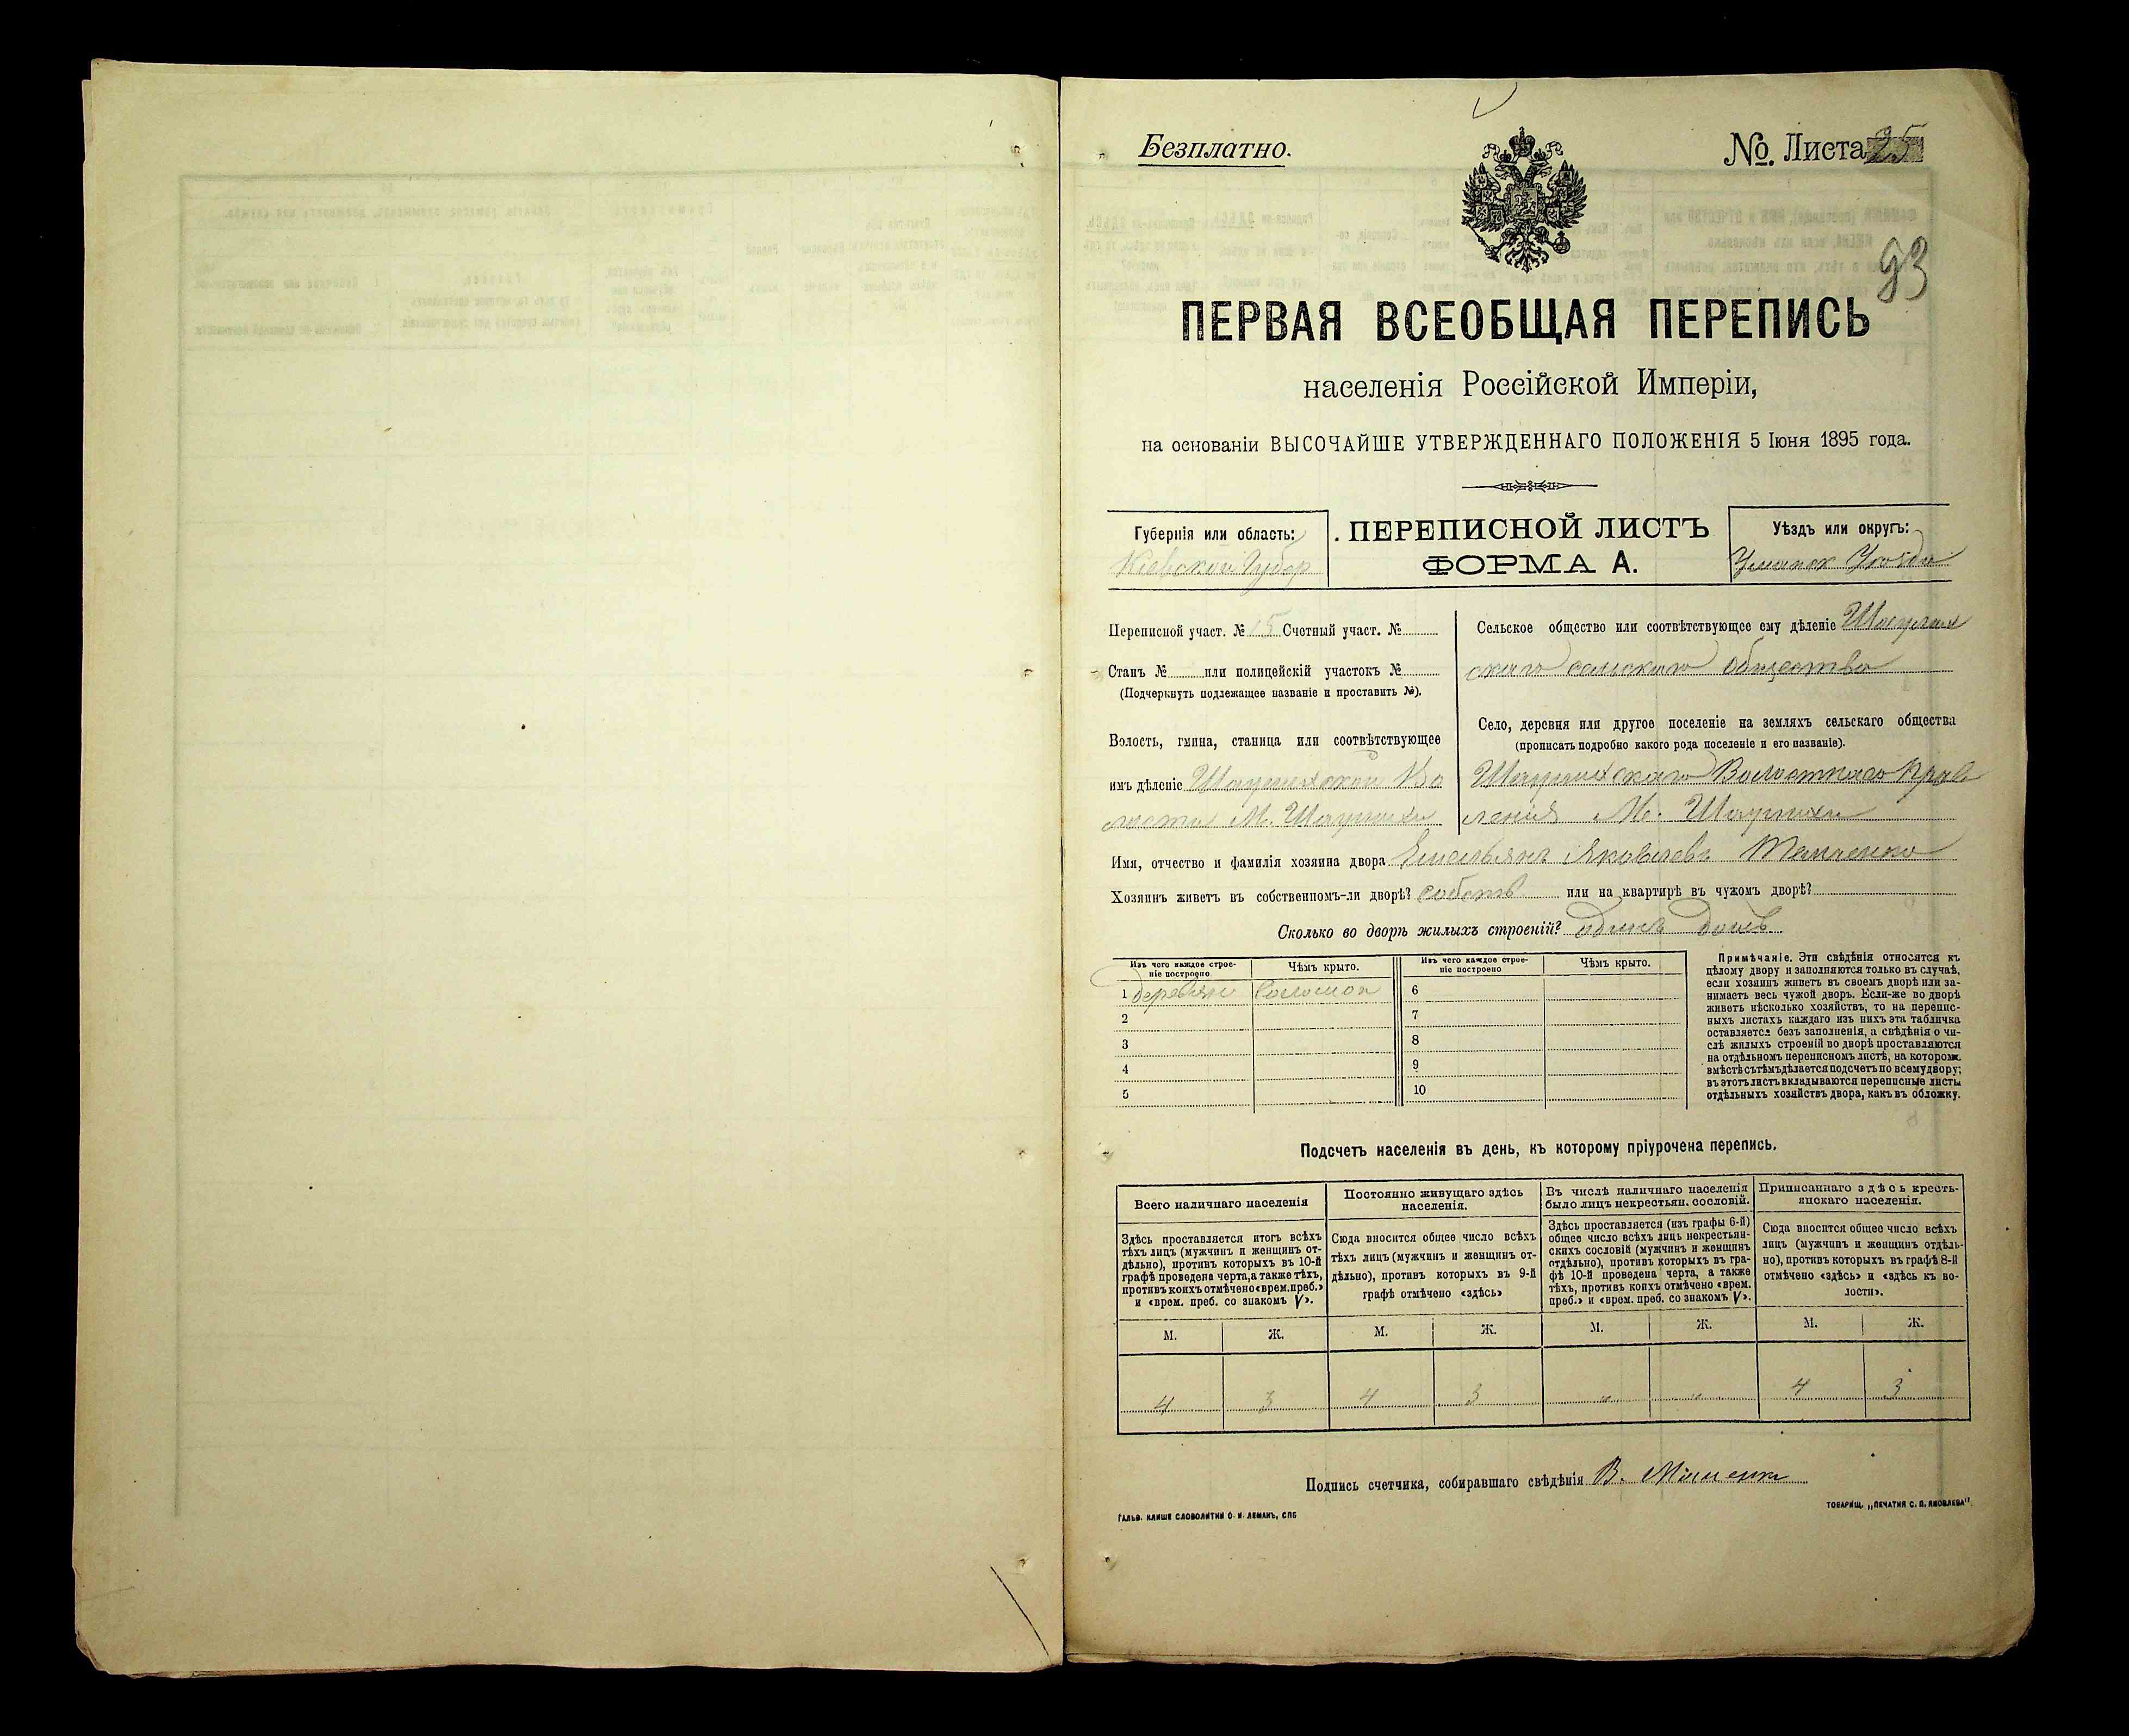 Безплатно.
№. Листа 25
93
ПЕРВАЯ ВСЕОБЩАЯ ПЕРЕПИСЬ
населенія Россійской Имперіи,
на основаніи ВЫСОЧАЙШЕ УТВЕРЖДЕННАГО ПОЛОЖЕНІЯ 5 Іюня 1895 года.
Губернія или область:
Кіевской Губер
ПЕРЕПИСНОЙ ЛИСТЪ
ФОРМА А.
Уѣздъ или округъ:
Уманск Уѣзда
Переписной участ. № 15 Счетный участ. №
Станъ № или полицейскій участокъ №
(Подчеркнуть подлежащее названіе и проставить №).
Волость, гмина, станица или соотвѣтствующее
имъ дѣленіе Шаулихской Во
лости М. Шаулихи
Сельское общество или соотвѣтствующее ему дѣленіе Шаулих
скаго сельскаго общества
Село, деревня или другое поселеніе на земляхъ сельскаго общества
(прописать подробно какого рода поселеніе и его названіе).
Шаулихскаго Волостнаго Прав
ленія М. Шаулихи
Имя, отчество и фамилія хозяина двора Емельянъ Яковлевъ
Хозяинъ живетъ въ собственномъ-ли дворѣ? собств или на квартирѣ въ чужомъ дворѣ?
Сколько во дворѣ жилыхъ строеній? одинъ домъ
Изъ чего каждое строе-
ніе построено
Чѣмъ крыто.
Изъ чего каждое строе-
ніе построено
Чѣмъ крыто.
1 деревян Соломой
2
3
4
5
6
7
8
9
10
Примѣчаніе. Эти свѣдѣнія относятся къ
цѣлому двору и заполняются только въ случаѣ,
если хозяинъ живетъ въ своемъ дворѣ или за-
нимаетъ весь чужой дворъ. Если-же во дворѣ
живетъ нѣсколько хозяйствъ, то на перепис-
ныхъ листахъ каждаго изъ нихъ эта табличка
оставляется безъ заполненія, а свѣдѣнія о чи-
слѣ жилыхъ строеній во дворѣ проставляются
на отдѣльномъ переписномъ листѣ, на которомъ
вмѣстѣ съ тѣмъ дѣлается подсчетъ по всему двору;
въ этотъ листъ вкладываются переписные листы
отдѣльныхъ хозяйствъ двора, какъ въ обложку.
Подсчетъ населенія въ день, къ которому пріурочена перепись.
Всего наличнаго населенія
Здѣсь проставляется итогъ всѣхъ
тѣхъ лицъ (мужчинъ и женщинъ от-
дѣльно), противъ которыхъ въ 10-й
графѣ проведена черта, а также тѣхъ,
противъ коихъ отмѣчено «врем. преб.»
и «врем. преб. со знакомъ V».
Постоянно живущаго здѣсь
населенія.
Сюда вносится общее число всѣхъ
тѣхъ лицъ (мужчинъ и женщинъ от-
дѣльно), противъ которыхъ въ 9-й
графѣ отмѣчено «здѣсь»
Въ числѣ наличнаго населенія
было лицъ некрестьян. сословій.
Здѣсь проставляется (изъ графы 6-й)
общее число всѣхъ лицъ некрестьян-
скихъ сословій (мужчинъ и женщинъ
отдѣльно), противъ которыхъ въ гра-
фѣ 10-й проведена черта, а также
тѣхъ, противъ коихъ отмѣчено «врем.
преб.» и «врем. преб. со знакомъ V».
Приписаннаго здѣсь кресть-
янскаго населенія.
Сюда вносится общее число всѣхъ
лицъ (мужчинъ и женщинъ отдѣль-
но), противъ которыхъ въ графѣ 8-й
отмѣчено «здѣсь» и «здѣсь къ во-
лости».
М. Ж. М. Ж. М. Ж. М. Ж.
4 3 4 3 „ „ 4 3
Подпись счетчика, собиравшаго свѣдѣнія В.
ГАЛЬВ. КЛИШЕ СЛОВОЛИТНИ О. И. ЛЕМАНЪ, СПБ
ТОВАРИЩ. „ПЕЧАТНЯ С. П. ЯКОВЛЕВА".